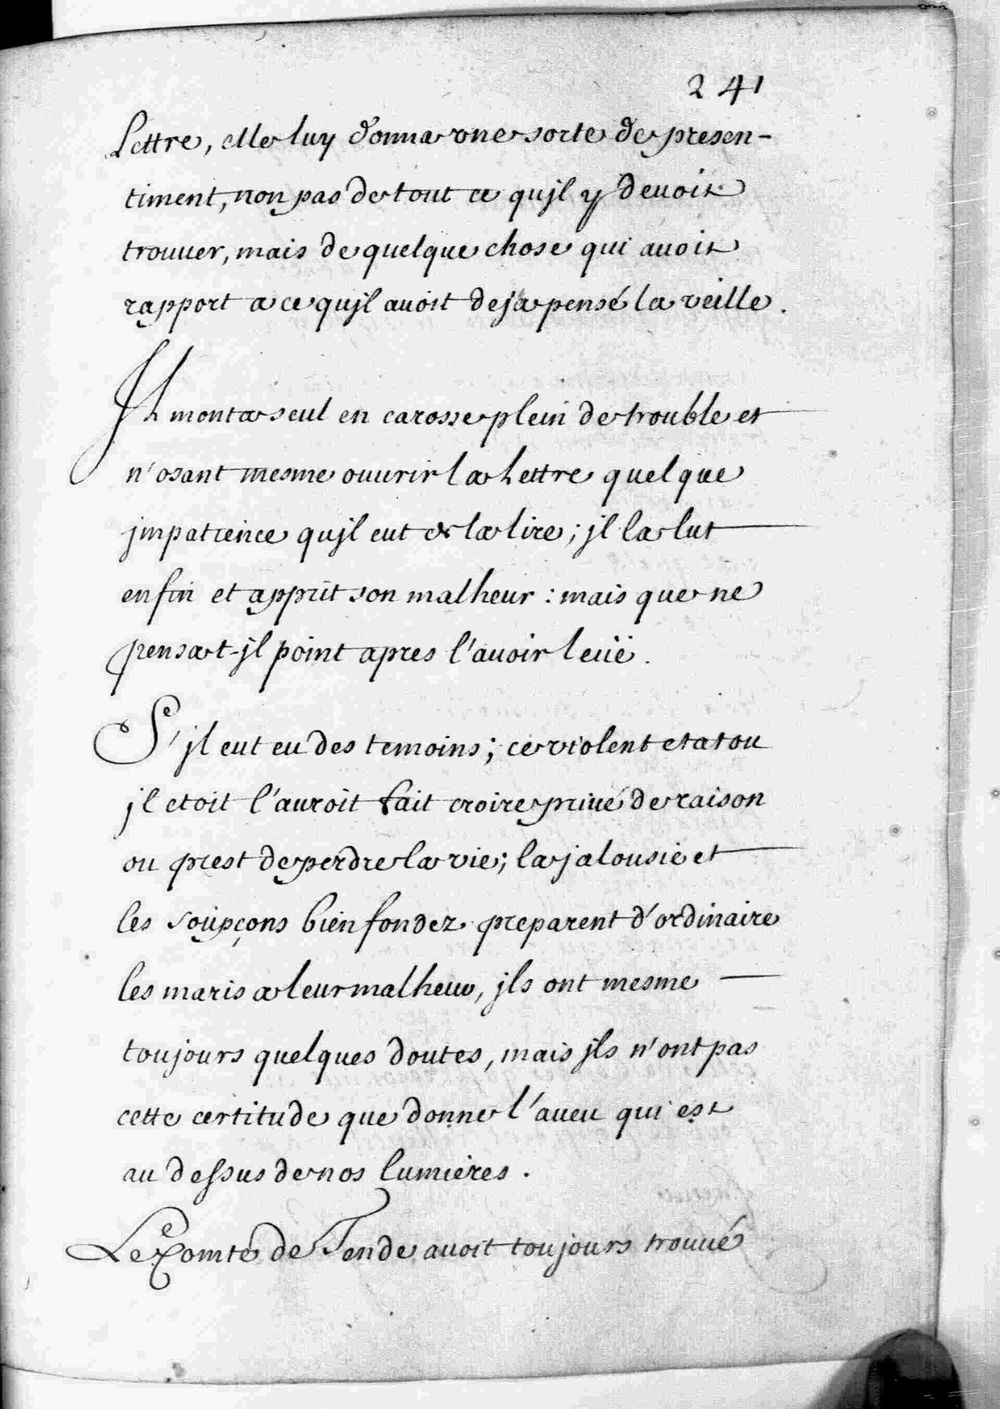 241
Lettre, elle luy donna une sorte de presen-
timent, non pas de tout ce qujl y devoit
trouver, mais de quelque chose qui avoit
rapport a ce qujl avoit deja pensé la veille.
Jl monta seul en carosse plein de trouble et
n'osant mesme ouvrir la Lettre quelque
jmpatience qujl eut de la lire; jl la lut
enfin et apprit son malheur : mais que ne
pensa t-jl point apres l'avoir leüe.
S'jl eut eu des temoins; ce violent etat ou
jl etoit l'auroit fait croire privé de raison
ou prest de perdre la vie; la jalousie et
les soupçons bien fondez preparent d'ordinaire
les maris a leur malheur, jls ont mesme
toujours quelques doutes, mais jls n'ont pas
cette certitude que donne l'aveu qui est
au dessus de nos lumieres.
Le Comte de Tende avoit toujours trouvé